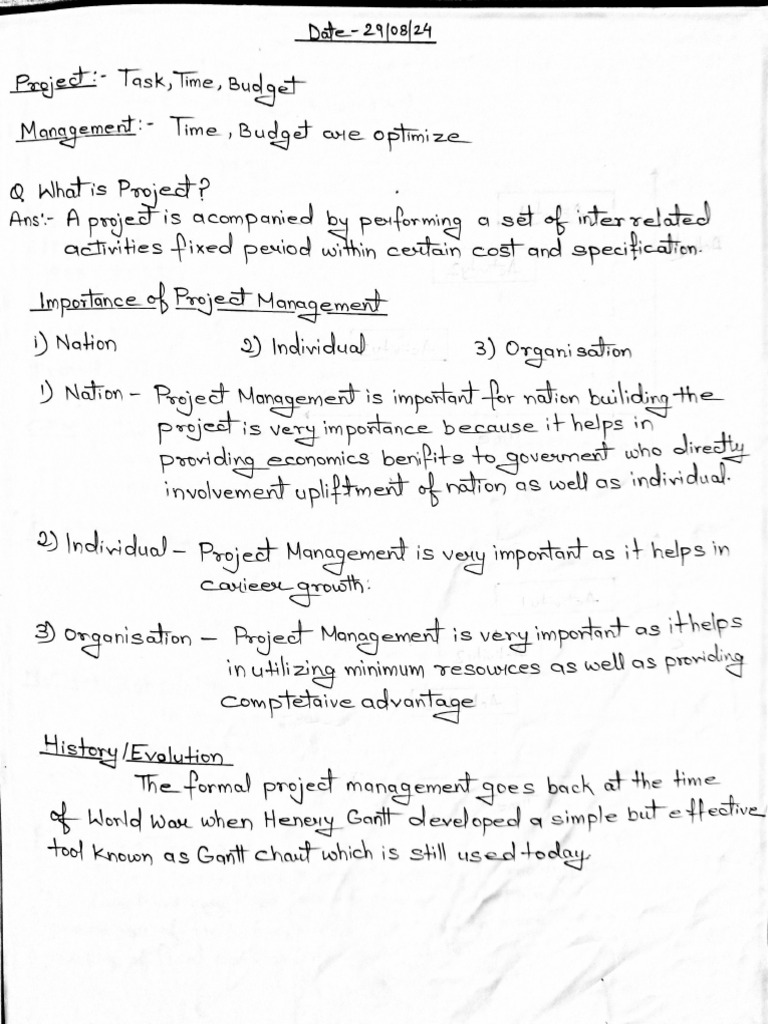 Date - 29/08/24
Project :- Task, Time, Budget
Management :- Time, Budget are optimize
Q. What is Project?
Ans:- A project is acompanied by performing a set of inter related
activities fixed period within certain cost and specification.
Importance of Project Management
i) Nation 2) Individual 3) Organisation
1) Nation - Project Management is important for nation builiding the
project is very importance because it helps in
providing economics benifits to goverment who directly
involvement upliftment of nation as well as individual.
2) Individual - Project Management is very important as it helps in
carieer growth.
3) Organisation - Project Management is very important as it helps
in utilizing minimum resources as well as providing
comptetaive advantage
History/Evolution
The formal project management goes back at the time
of World War when Henery Gantt developed a simple but effective
tool known as Gantt chart which is still used today.